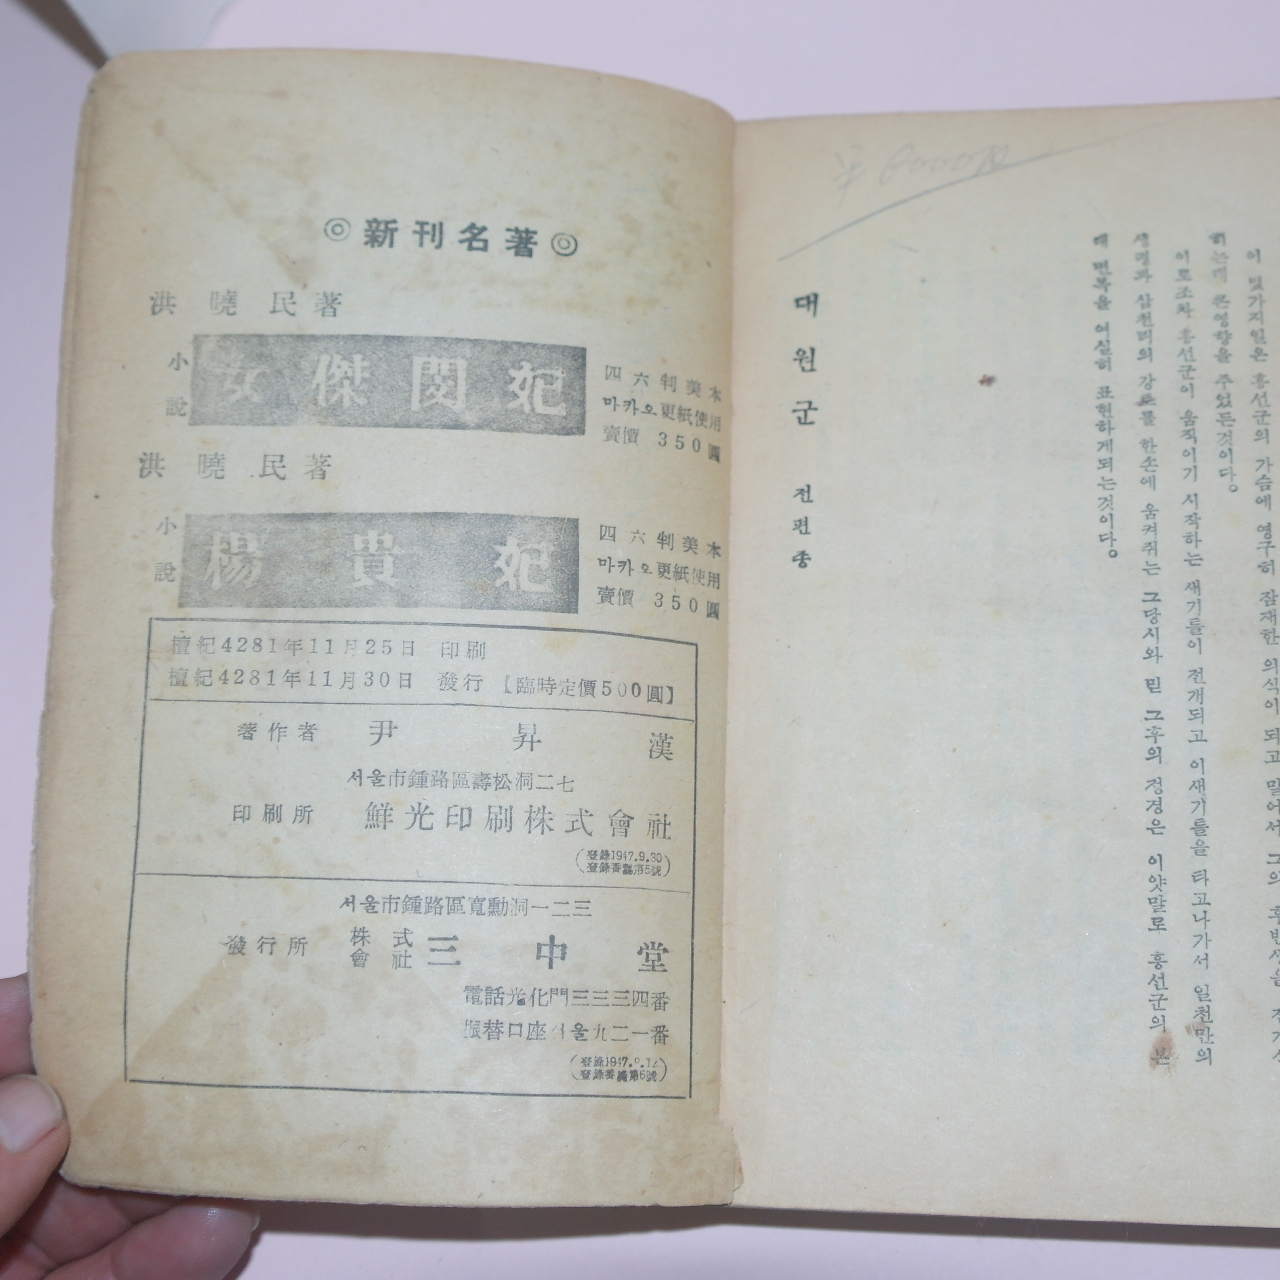 ◎新刊名著◎
洪曉民著
小說 女傑閔妃
四六判美本
마카오更紙使用
賣價 350圓
洪曉民著
小說 楊貴妃
四六判美本
마카오更紙使用
賣價 350圓
檀紀4281年11月25日 印刷
檀紀4281年11月30日 發行 【臨時定價500圓】
著作者 尹昇漢
서울市鍾路區壽松洞二七
印刷所 鮮光印刷株式會社
(登錄1947.9.30
登錄番號第5號)
서울市鍾路區寬勳洞一二三
發行所 株式會社 三中堂
電話光化門三三三四番
振替口座서울九二一番
登錄番號第6號)
이 몇가지일은 흥선군의 가슴에 영구히 잠재한 의식이 되고 말어서 그의 후반생을
하는데 큰영향을 주었든것이다。
이로조차 흥선군이 움직이기 시작하는 새기틀이 전개되고 이새기틀을 타고나가서 일천만의
생령과 삼천리의 강土를 한손에 움켜쥐는 그당시와 및 그후의 정경은 이얏말로 흥선군의 본
때 면목을 여실히 표현하게되는것이다。
대원군 전편 종